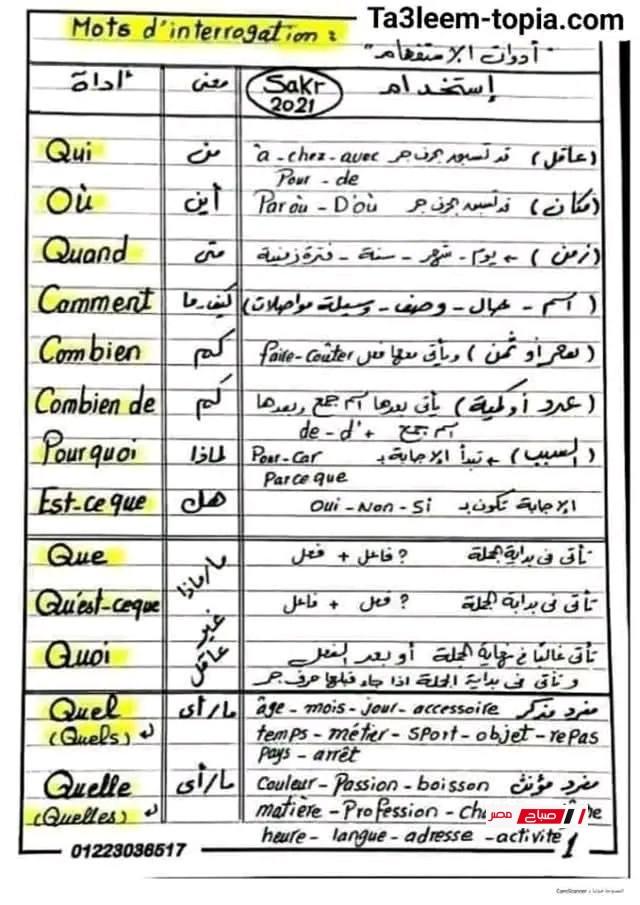 Ta3leem-topia.com
Mots d'interrogation :
"أدوات الاستفهام"
أداة معنى Sakr 2021 إستخدام
Qui من (عاقل) قد تسبق بحرف جر à - chez - avec
Pour - de
Où أين (مكان) قد تسبق بحرف جر Par où - D'où
Quand متى (زمن) ← يوم - شهر - سنة - فترة زمنية
Comment كيف - ما (اسم - حال - وصف - وسيلة مواصلات)
Combien كم (سعر أو ثمن) ويأتى معها فعل faire - coûter
Combien de كم (عدد أو كمية) يأتى بعدها اسم جمع وبعدها
de - d' + اسم جمع
Pourquoi لماذا (السبب) ← تبدأ الإجابة بـ Pour - Car
Parce que
Est-ce que هل الإجابة تكون بـ Oui - Non - Si
Que ما/ماذا تأتى فى بداية الجملة ? فاعل + فعل
Qu'est-ceque غير تأتى فى بداية الجملة ? فعل + فاعل
Quoi عاقل تأتى غالبًا فى نهاية الجملة أو بعد الفعل
و تأتى فى بداية الجملة اذا جاء قبلها حرف جر
Quel ما/أى مفرد مذكر âge - mois - jour - accessoire
(Quels) temps - métier - sport - objet - repas
pays - arrêt
Quelle ما/أى مفرد مؤنث Couleur - Passion - boisson
(Quelles) matière - Profession
صباح مصر
heure - langue - adresse - activité
01223036517
1
CamScanner الممسوحة ضوئيا بـ